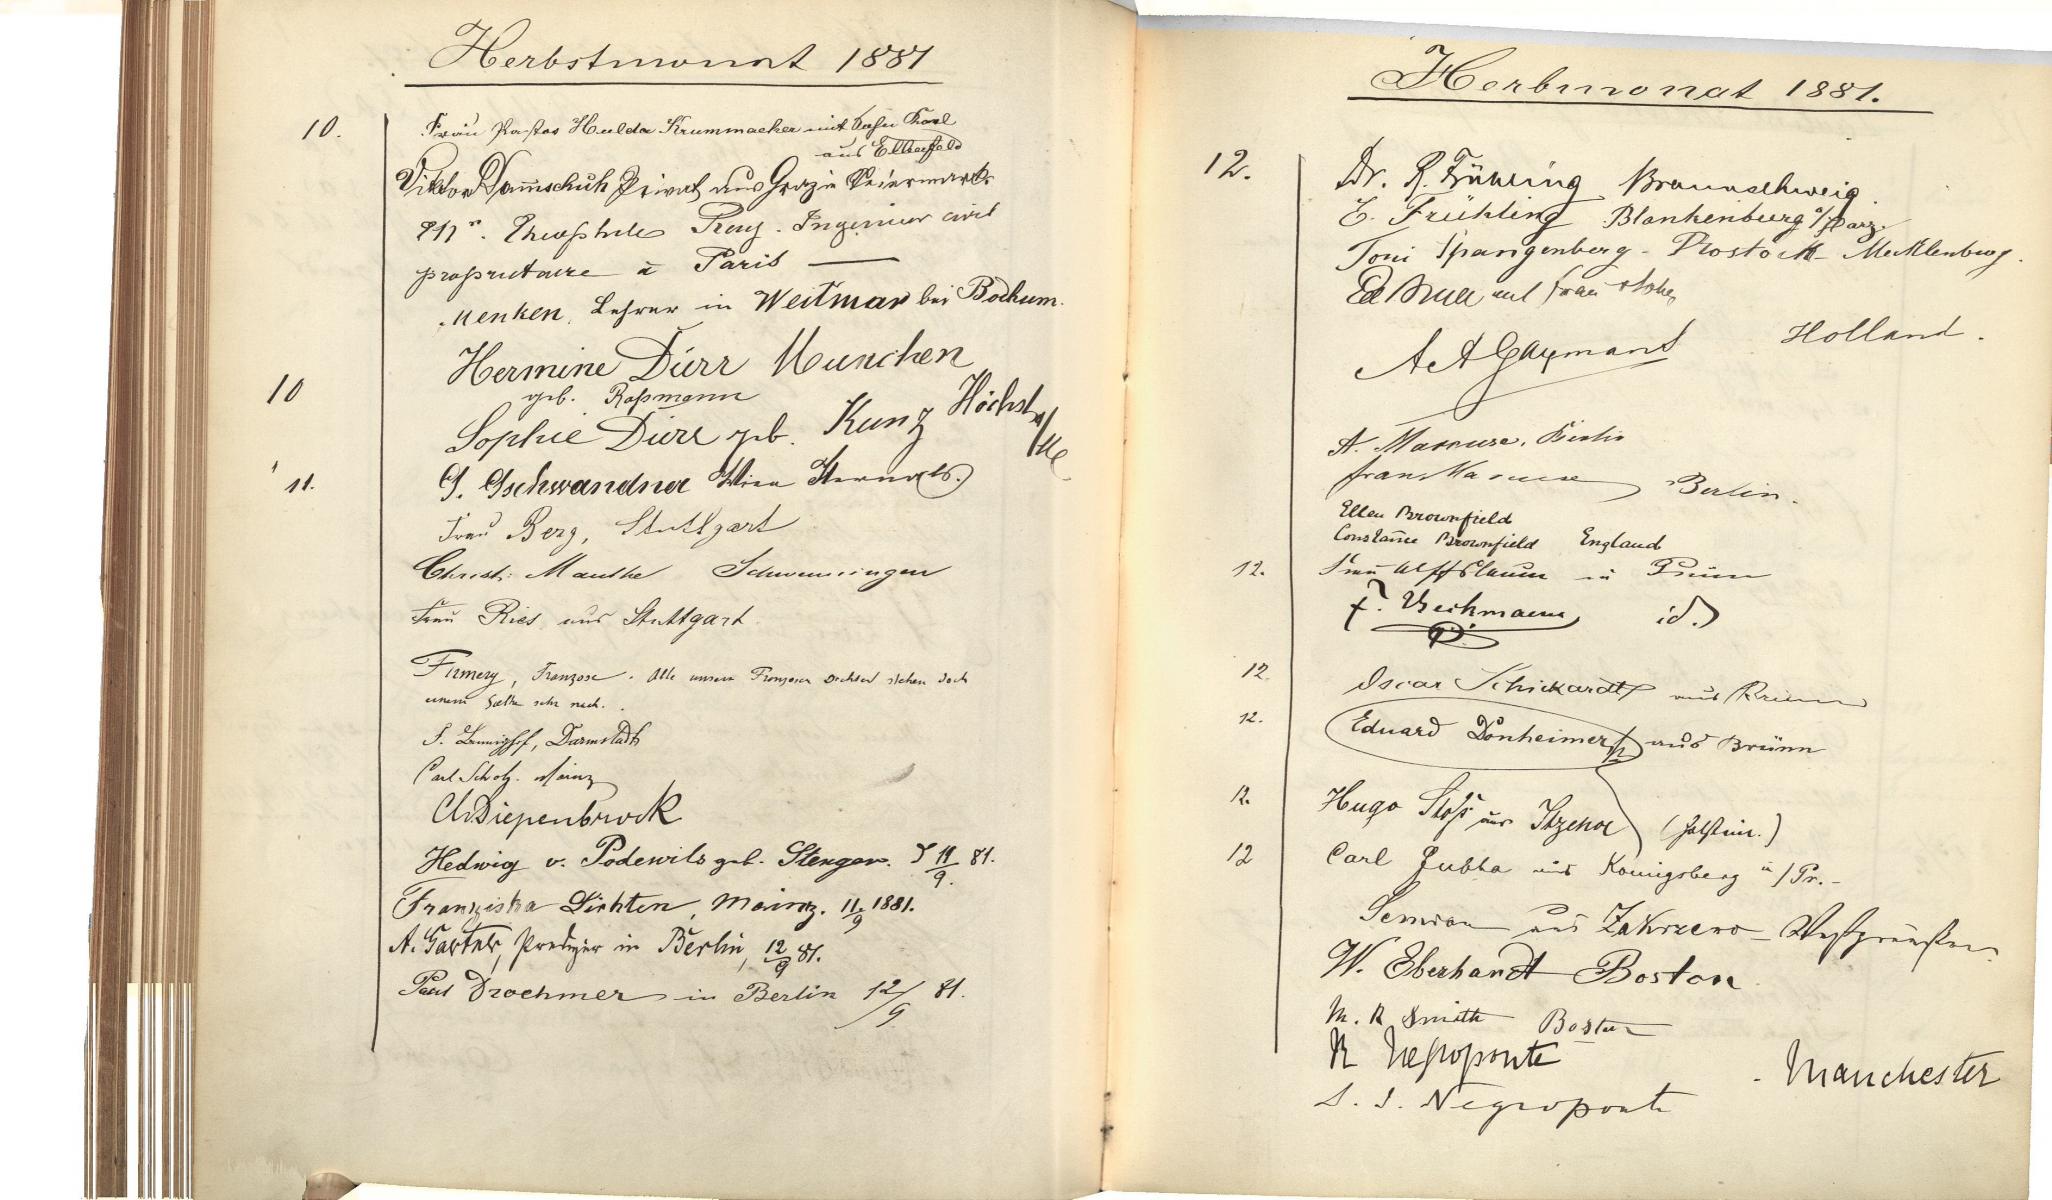 Herbstmonat 1881
10. Frau Pastor Hulda Krummacher mit Sohn Karl
aus Elberfeld
Viktor Damschuh Privat aus Graz in Steiermark
Mr. Theophile Remy. Ingenieur civil
proprietaire à Paris
Menken, Lehrer in Weitmar bei Bochum.
Hermine Dürr München
10 geb. Roßmann
Sophie Dürr geb. Kunz Höchst a/M
11. G. Gschwandner Wien Hernals.
Frau Berg, Stuttgart
Christ: Mauthe Schwenningen
Frau Ries aus Stuttgart
Firmery, Franzose. Alle unsere Franzosen Dichter stehen doch
einem Göthe sehr nach.
Darmstadt
Carl Scholz. Mainz
Ch Diepenbrock
Hedwig v. Podewils geb. Stenger. 11/9 81.
Franziska Lichten, Mainz. 11/9 1881.
A. Gartner, Prediger in Berlin, 12/9 81.
Paul Droehmer in Berlin 12/9 81.
Herbmonat 1881.
12. Dr. R. Frühling Braunschweig.
E. Frühling Blankenburg a/Harz.
Toni Spangenberg - Rostock - Mecklenburg.
mit Frau
A A Gaymans Holland.
A. Marcuse, Berlin
Frau Marcuse Berlin.
Ellen Brownfield
Constance Brownfield England
12. Frau in Brünn
F. Beckmann id.
12. Oscar Schickardt aus Brünn
12. Eduard Donheimer aus Brünn
12. Hugo Stoß aus Itzehoe (Holstein.)
12 Carl Gubba aus Königsberg in/Pr.-
Semrau aus Zakrzewo - Westpreußen.
W. Eberhardt Boston
M. R Smith Boston
R Negroponte
Manchester
S. J. Negroponte